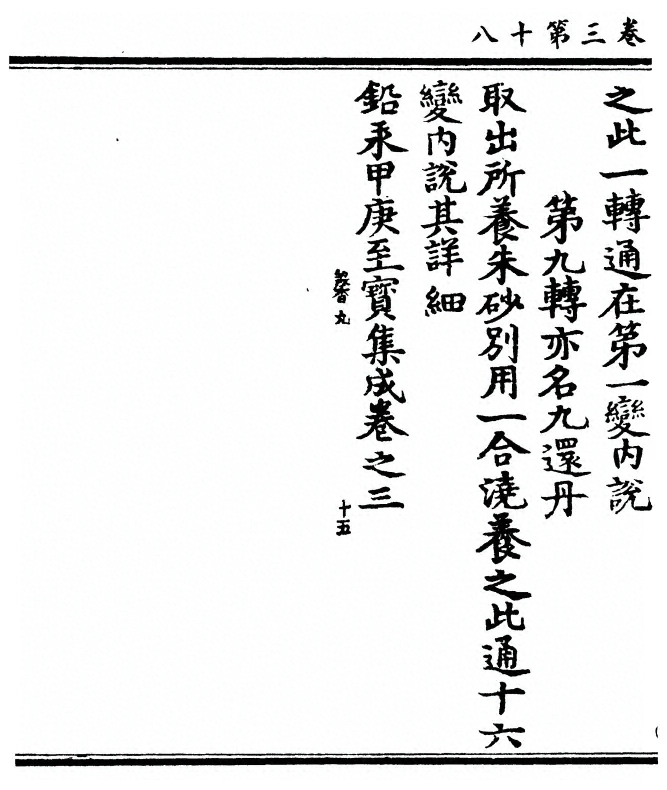 卷三第十八
之此一轉通在第一變內說
第九轉亦名九還丹
取出所養朱砂別用一合澆養之此通十六
變內說其詳細
鉛汞甲庚至寶集成卷之三
十五